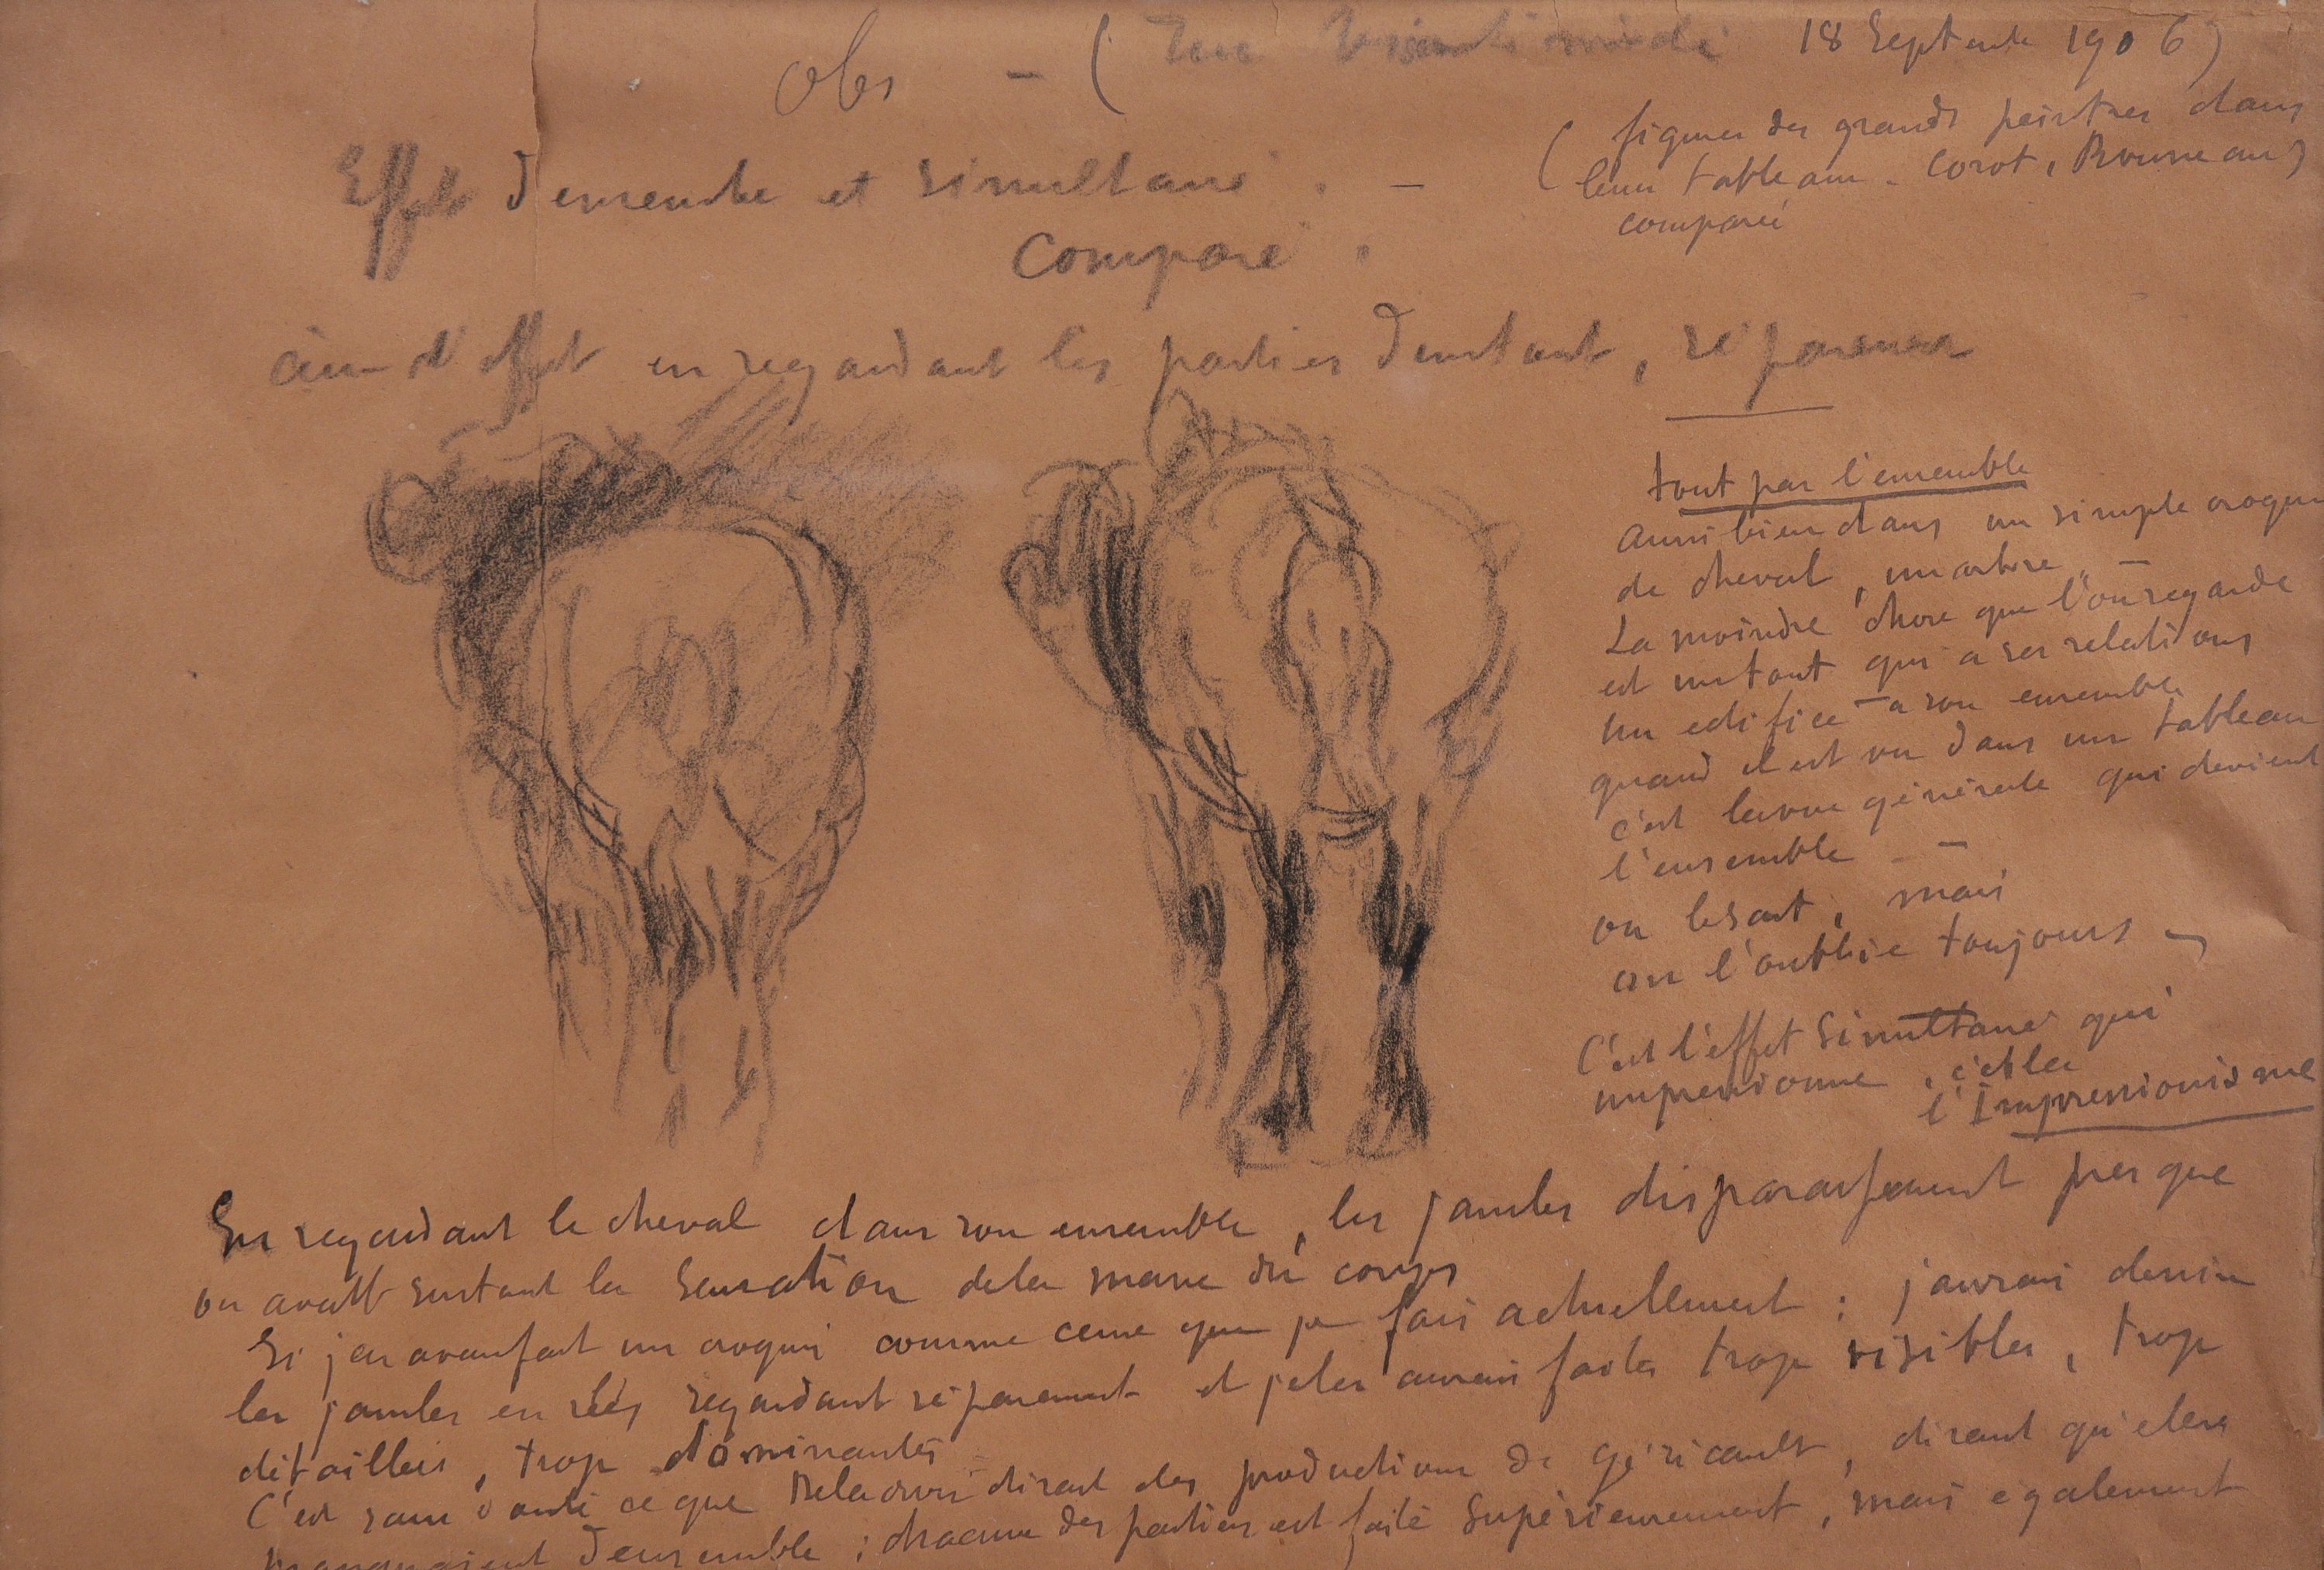 Obs — ( 18 Septembre 1906)
( figures des grands peintres dans
leur tableau - Corot, Rousseau)
comparé
Effet d'ensemble et simultané . —
Comparé .
d'effet en regardant les parties d'un tout, séparement
tout par l'ensemble
aussi bien dans un simple croquis
de cheval, un arbre, —
La moindre chose que l'on regarde
est un tout qui a ses relations
un edifice — a son ensemble
quand il est vu dans un tableau
c'est la vue générale qui devient
l'ensemble — —
on le sait, mais
on l'oublie toujours —
C'est l'effet Simultané qui
impressionne, c'est la
l'Impressionisme
En regardant le cheval dans son ensemble, les jambes disparaissent presque
on avait surtout la Sensation de la masse du corps
Si j'en avais fait un croquis comme ceux que je fais actuellement : j'aurais dessiné
les jambes en les regardant séparement et je les aurais faites trop visibles, trop
détaillées, trop dominantes
C'est sans doute ce que Delacroix disait des productions de Géricault, disant qu'elles
manquaient d'ensemble ; chacune des parties est faite Supérieurement, mais egalement